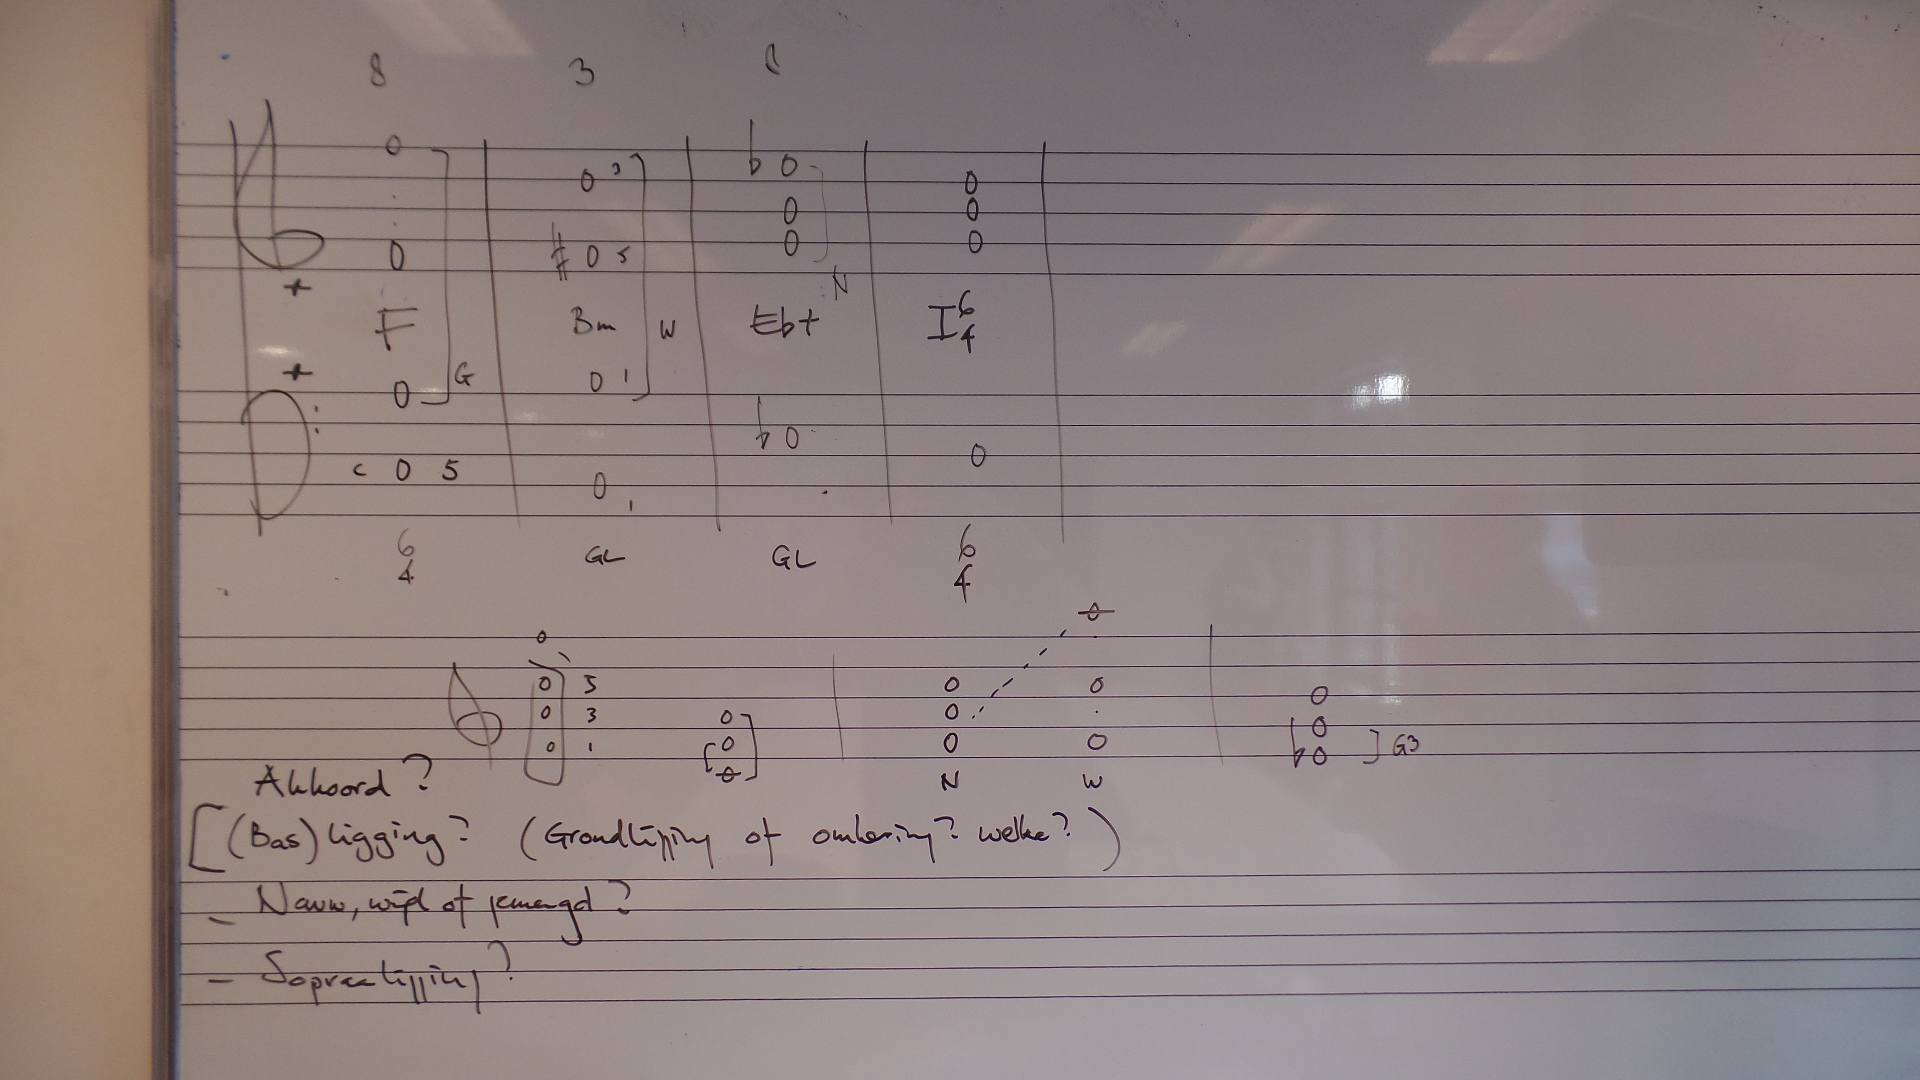 8 3
3
♯ 5
♭
F Bm W Eb+ N I 6 4
G 1
♭
c 5
6 4 GL GL 6 4
5
3
1
N W ♭ G3
Akkoord?
(Bas) ligging? (Grondligging of omkering? welke?)
- Nauw, wijd of gemengd?
- Sopraanligging?